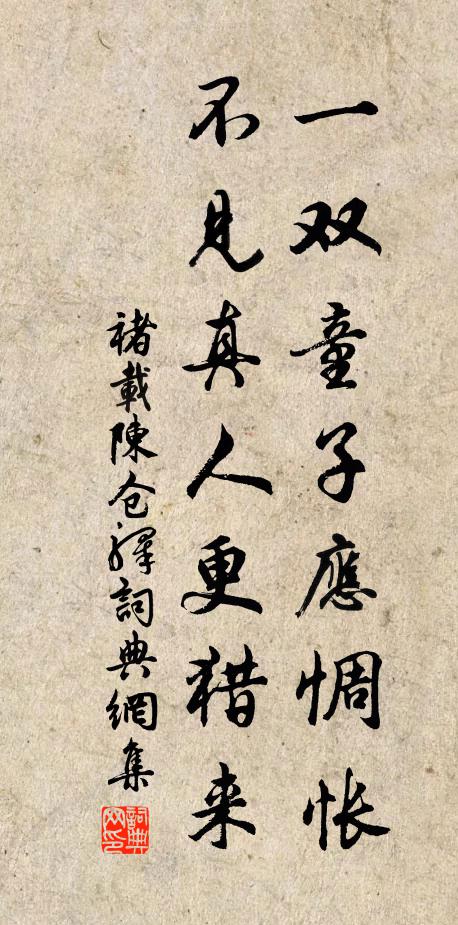 一双童子應惆怅
不見真人更猎来
褚載陳仓驛詞典網集
詞典网印